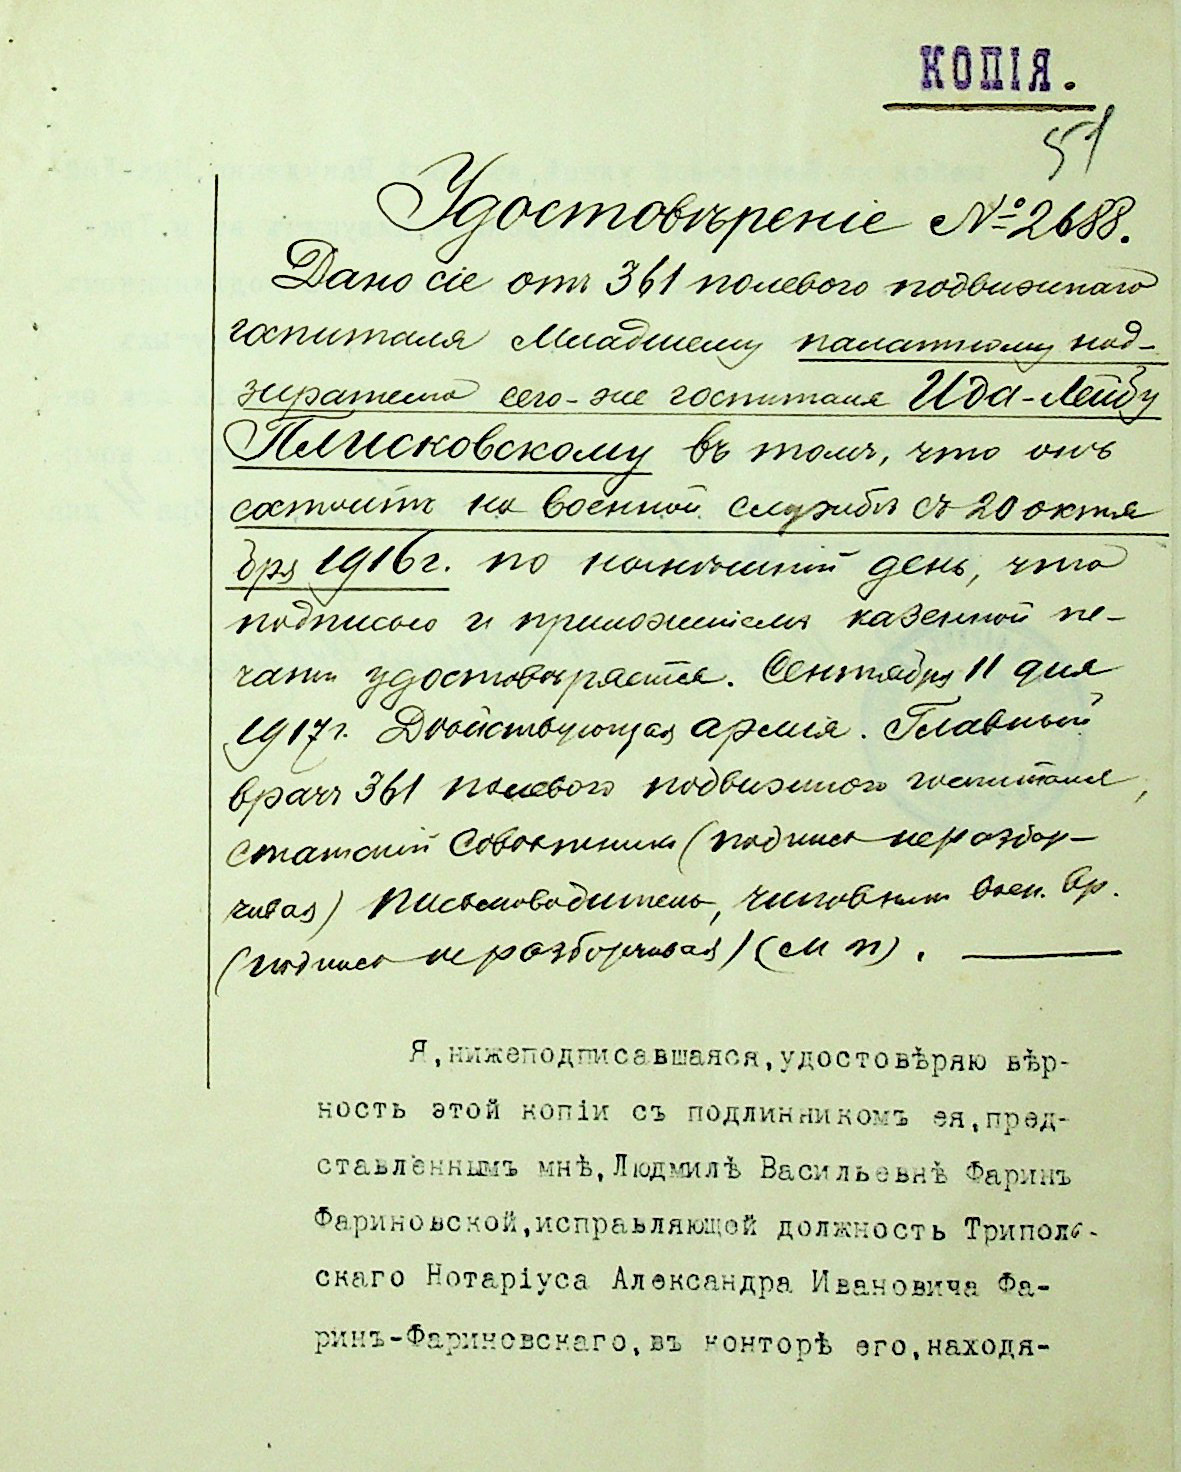 КОПІЯ.
51
Удостовѣреніе № 2688.
Дано сіе отъ 361 полевого подвижнаго
госпиталя Младшему палатному над-
зирателю сего-же госпиталя Ида-Лейбу
Плисковскому въ томъ, что онъ
состоитъ на военной службѣ съ 20 октя
бря 1916 г. по нынѣшній день, что
подписью и приложеніемъ казенной пе-
чати удостовѣряется. Сентября 11 дня
1917 г. Дѣйствующая армія. Главный
врачъ 361 полевого подвижного госпиталя,
статскій Совѣтникъ (подпись неразбор-
чивая) Письмоводитель, чиновникъ воен. вр.
(подпись неразборчивая) (М П). —
Я, нижеподписавшаяся, удостовѣряю вѣр-
ность этой копіи съ подлинникомъ ея, пред-
ставленнымъ мнѣ, Людмилѣ Васильевнѣ Фаринъ
Фариновской, исправляющей должность Триполь-
скаго Нотаріуса Александра Ивановича Фа-
ринъ-Фариновскаго, въ конторѣ его, находя-